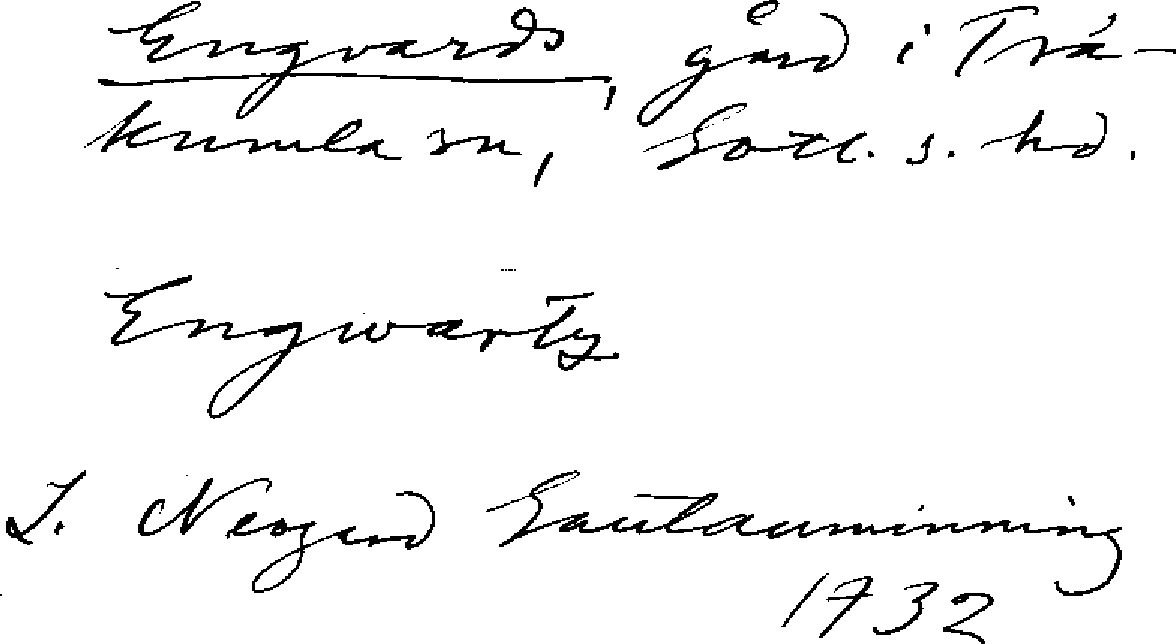 Engvards, gård i Trä-
kumla sn, Gotl. s. hd.
Engwartz
L. Neogard Gautauminning
1732